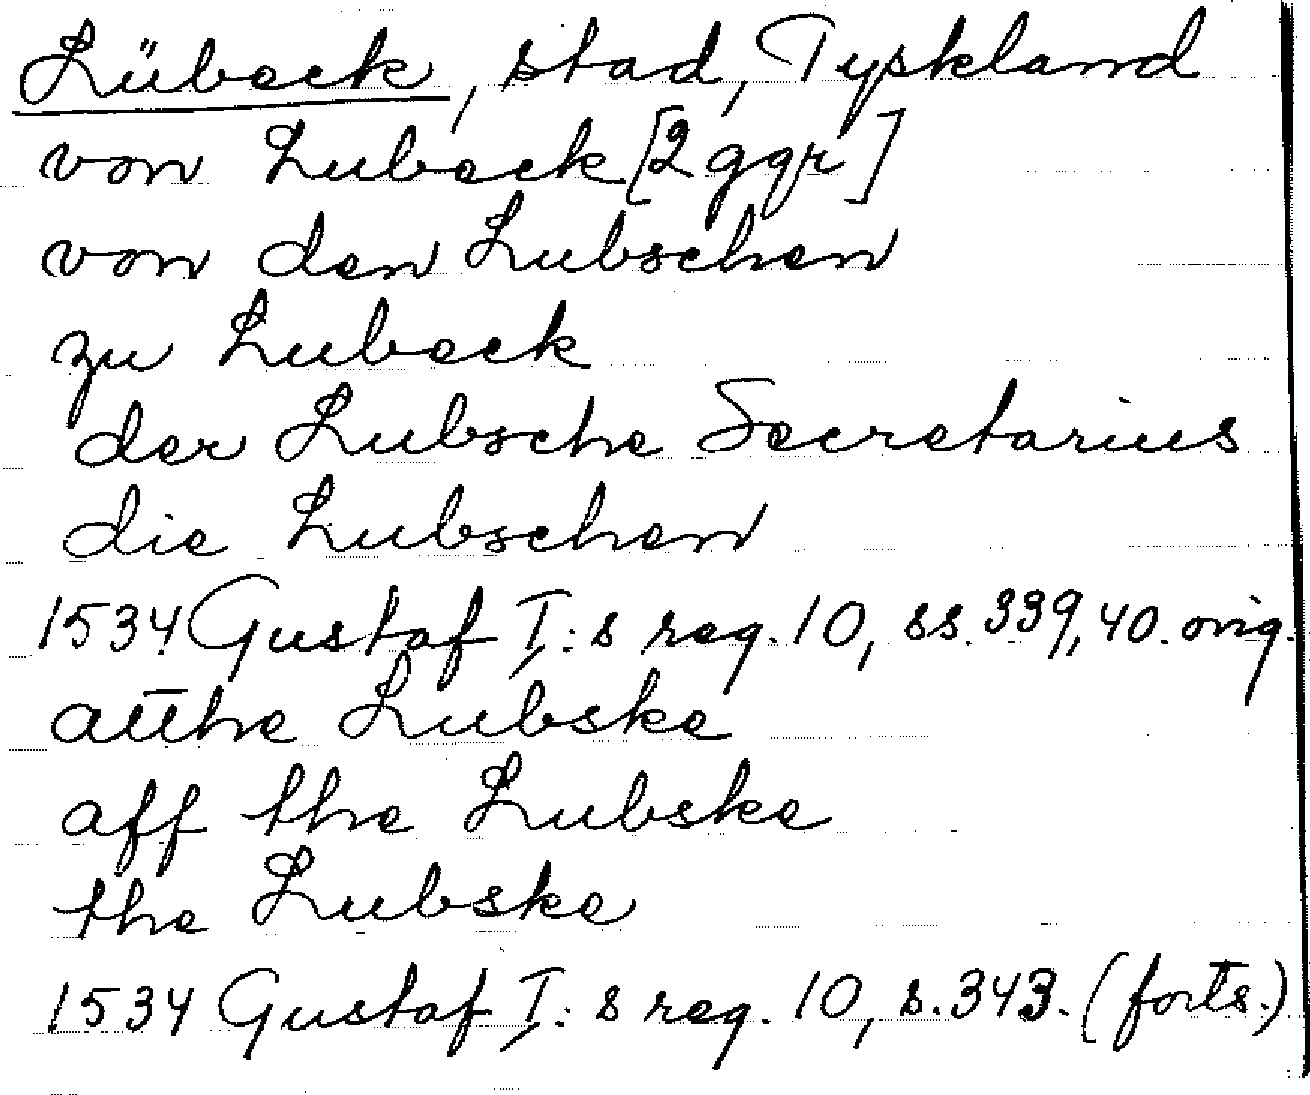 Lübeck, stad, Tyskland
von Lubeck [2 ggr]
von den Lubschen
zu Lubeck
der Lubsche Secretarius
die Lubschen
1534 Gustaf I:s reg. 10, ss. 339, 40. orig.
atthe Lubske
aff the Lubske
the Lubske
1534 Gustaf I:s reg. 10, s. 343. (forts.)